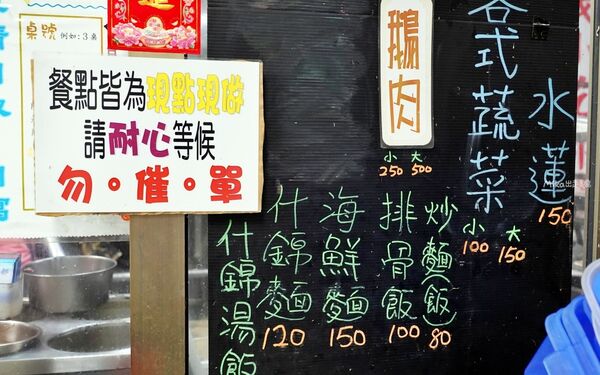 桌號 例如:3桌
餐點皆為現點現做
請耐心等候
勿。催。單
鵝肉
小 大
250 500
各式蔬菜
小 大
100 150
水蓮
150
炒麵(飯)
80
排骨飯
100
海鮮麵
150
什錦麵
120
什錦湯飯